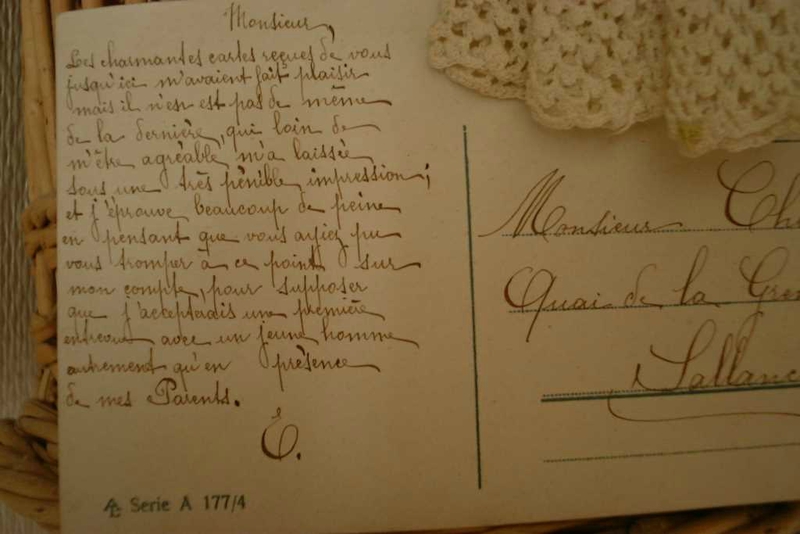 Monsieur,
Les charmantes cartes reçues de vous
jusqu'ici m'avaient fait plaisir
mais il n'en est pas de même
de la dernière, qui loin de
m'être agréable m'a laissée
sous une très pénible impression;
et j'éprouve beaucoup de peine
en pensant que vous ayiez pu
vous tromper à ce point sur
mon compte, pour supposer
que j'accepterais une première
entrevue avec un jeune homme
autrement qu'en présence
de mes Parents.
E.
Serie A 177/4
Monsieur Ch
Quai de la Gre
Sallanc